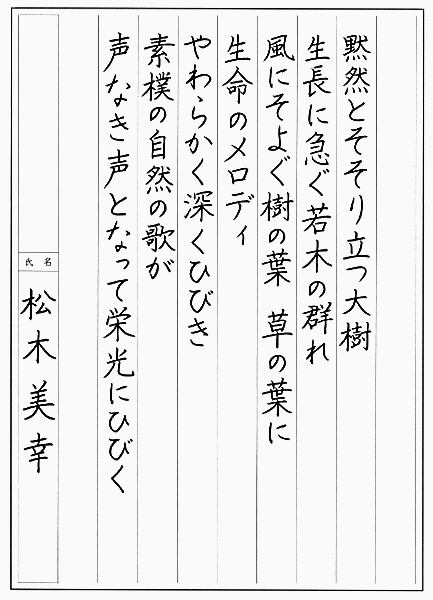 黙然とそそり立つ大樹
生長に急ぐ若木の群れ
風にそよぐ樹の葉　草の葉に
生命のメロディ
やわらかく深くひびき
素樸の自然の歌が
声なき声となって栄光にひびく
氏名
松木美幸